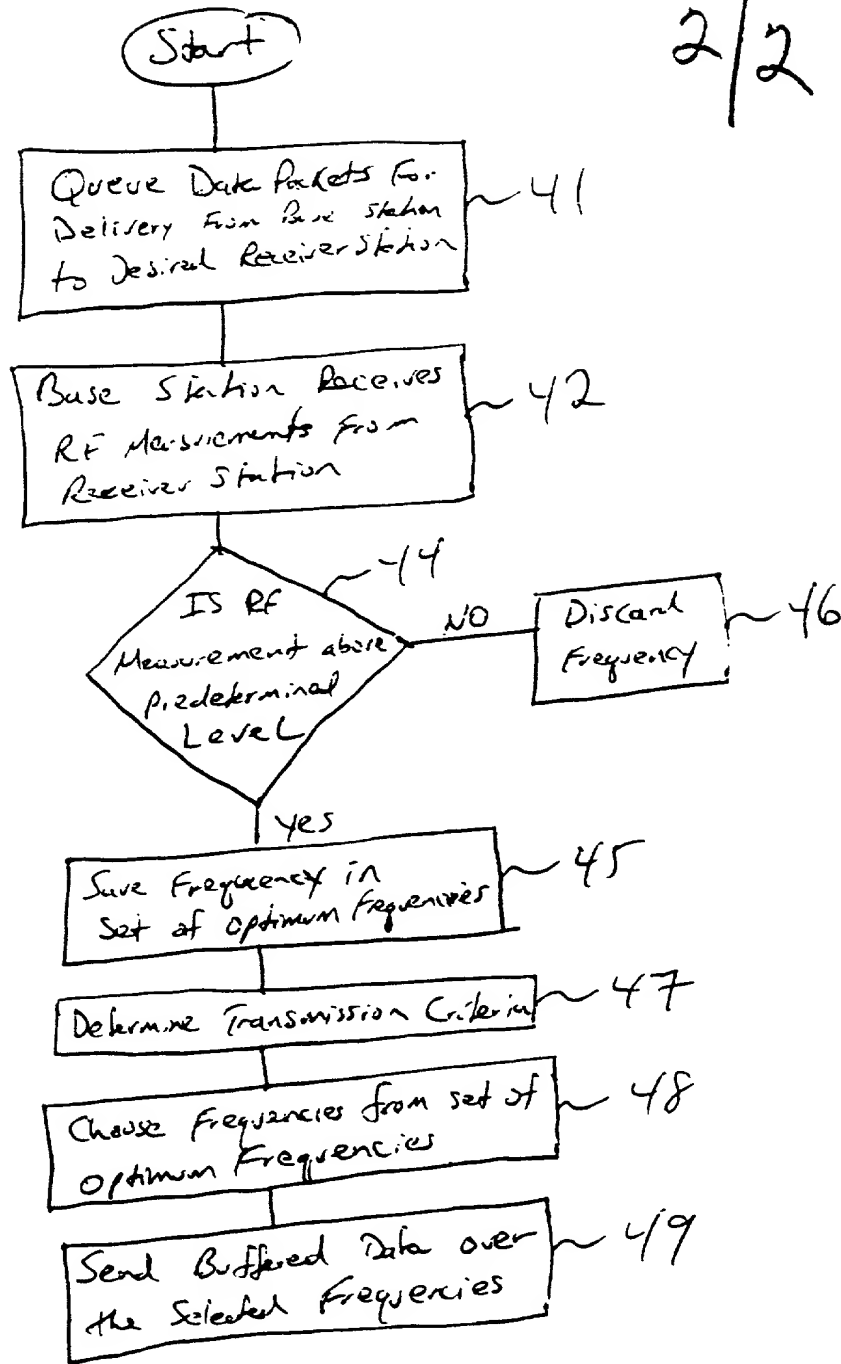 2/2
Start
Queue Data Packets For
Delivery From Base Station
to Desired Receiver Station
41
Base Station Receives
RF Measurements From
Receiver Station
42
44
IS RF
Measurement above
Predetermined
Level
NO
Discard
Frequency
46
yes
Save Frequency in
Set of Optimum Frequencies
45
Determine Transmission Criteria
47
Choose Frequencies from set of
Optimum Frequencies
48
Send Buffered Data over
the Selected Frequencies
49